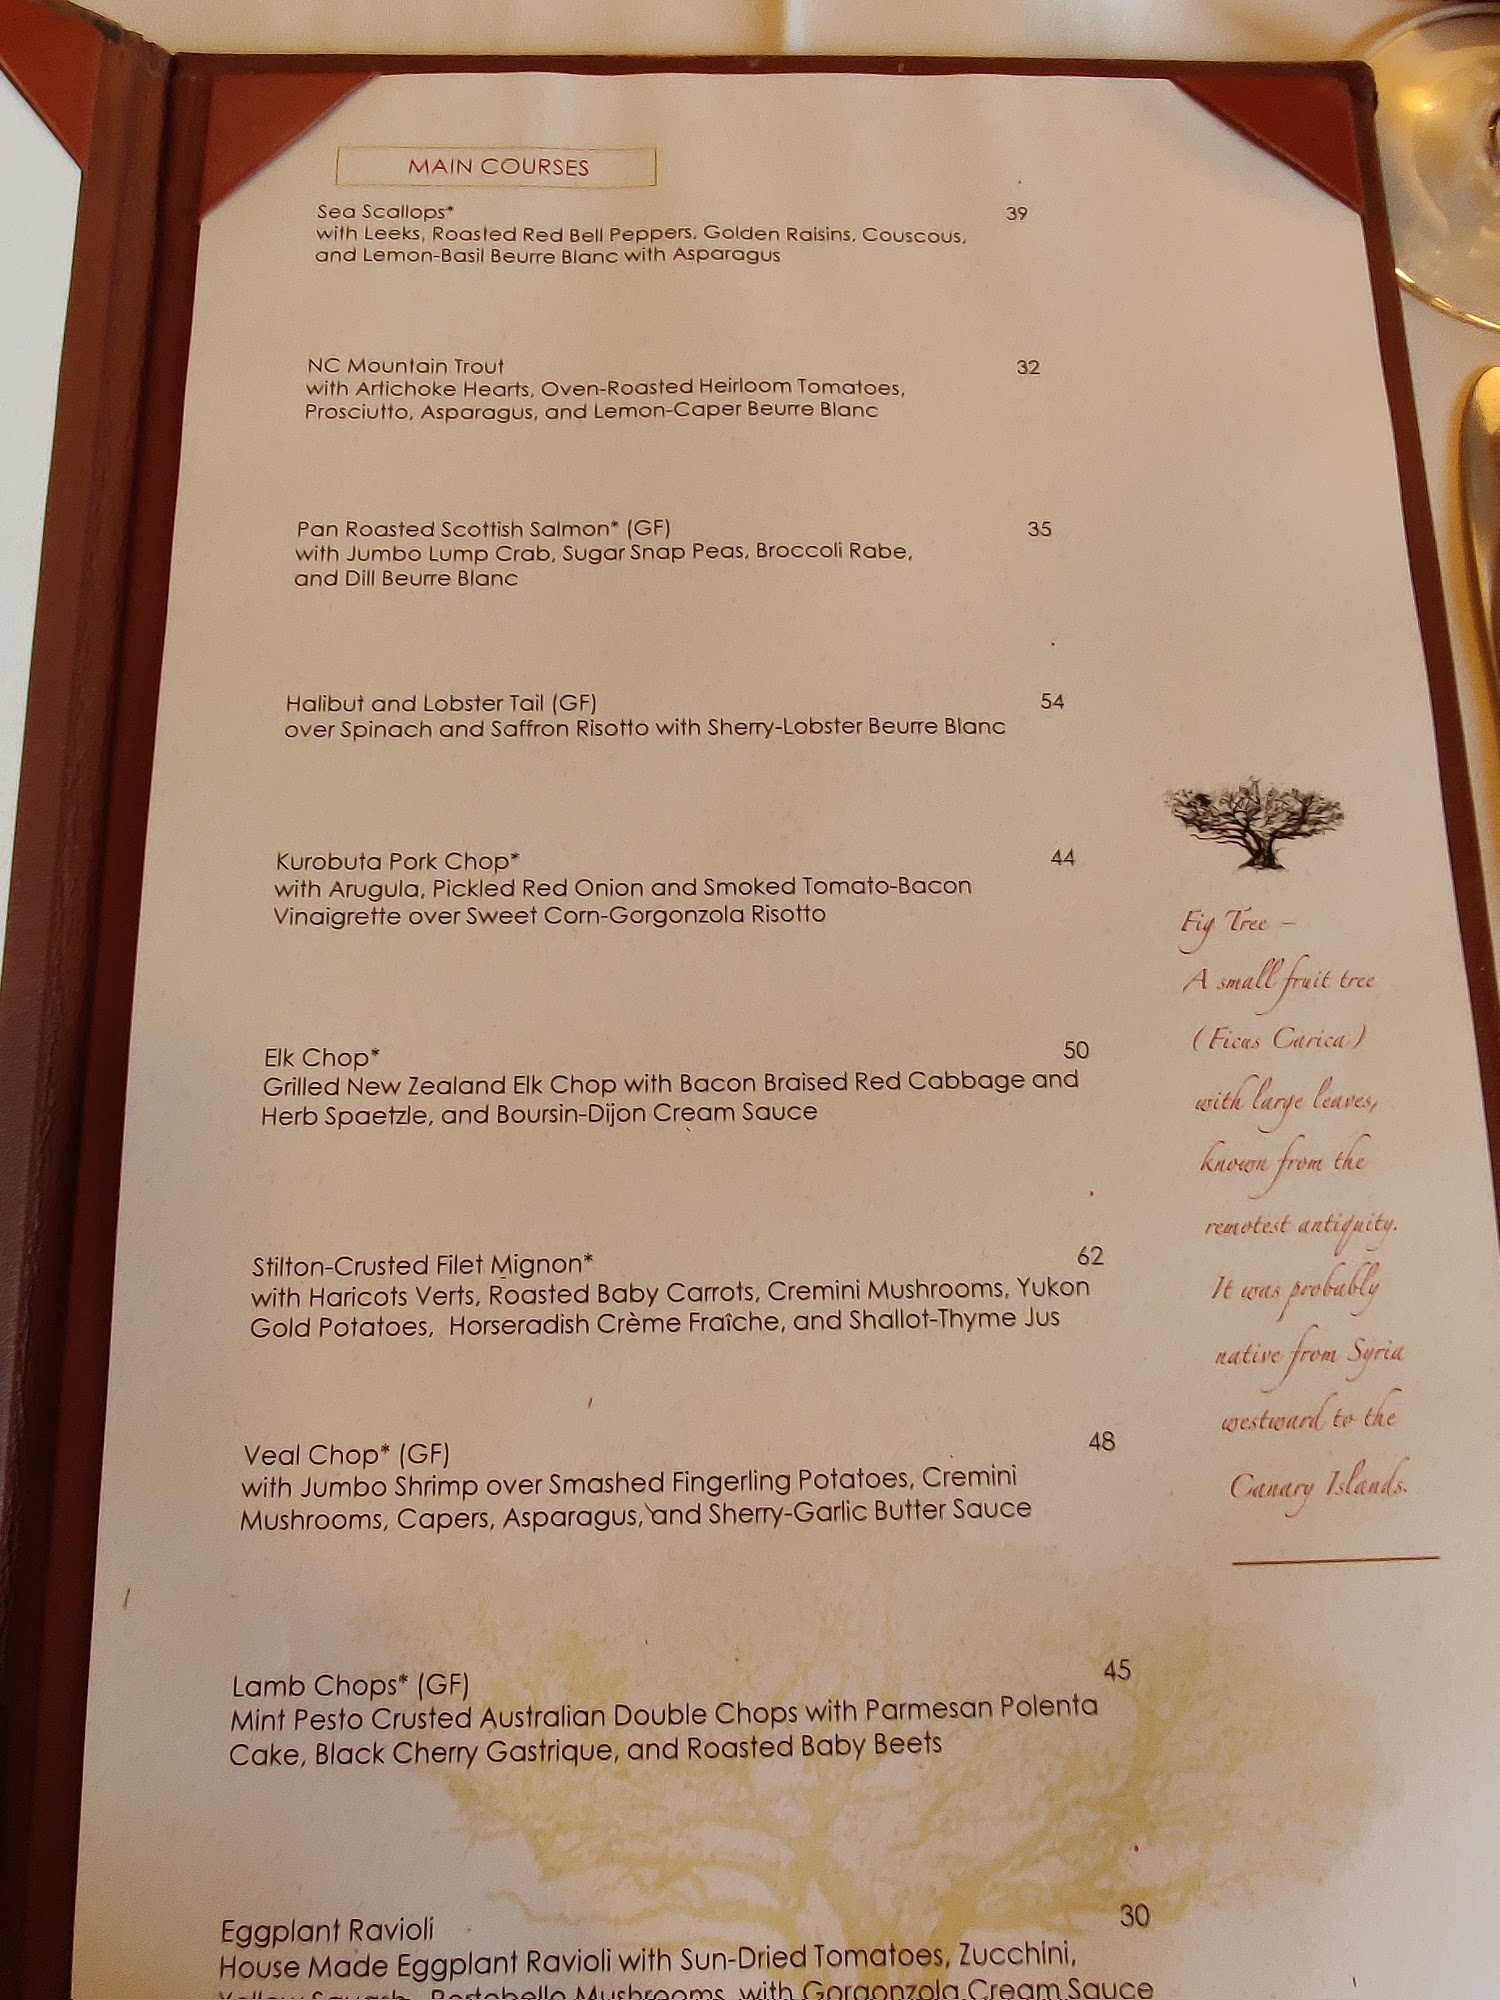 MAIN COURSES
Sea Scallops* 39
with Leeks, Roasted Red Bell Peppers, Golden Raisins, Couscous,
and Lemon-Basil Beurre Blanc with Asparagus
NC Mountain Trout 32
with Artichoke Hearts, Oven-Roasted Heirloom Tomatoes,
Prosciutto, Asparagus, and Lemon-Caper Beurre Blanc
Pan Roasted Scottish Salmon* (GF) 35
with Jumbo Lump Crab, Sugar Snap Peas, Broccoli Rabe,
and Dill Beurre Blanc
Halibut and Lobster Tail (GF) 54
over Spinach and Saffron Risotto with Sherry-Lobster Beurre Blanc
Kurobuta Pork Chop* 44
with Arugula, Pickled Red Onion and Smoked Tomato-Bacon
Vinaigrette over Sweet Corn-Gorgonzola Risotto
Elk Chop* 50
Grilled New Zealand Elk Chop with Bacon Braised Red Cabbage and
Herb Spaetzle, and Boursin-Dijon Cream Sauce
Stilton-Crusted Filet Mignon* 62
with Haricots Verts, Roasted Baby Carrots, Cremini Mushrooms, Yukon
Gold Potatoes, Horseradish Crème Fraîche, and Shallot-Thyme Jus
Veal Chop* (GF) 48
with Jumbo Shrimp over Smashed Fingerling Potatoes, Cremini
Mushrooms, Capers, Asparagus, and Sherry-Garlic Butter Sauce
Lamb Chops* (GF) 45
Mint Pesto Crusted Australian Double Chops with Parmesan Polenta
Cake, Black Cherry Gastrique, and Roasted Baby Beets
Eggplant Ravioli 30
House Made Eggplant Ravioli with Sun-Dried Tomatoes, Zucchini,
Yellow Squash, Portobello Mushrooms, with Gorgonzola Cream Sauce
Fig Tree –
A small fruit tree
(Ficus Carica)
with large leaves,
known from the
remotest antiquity.
It was probably
native from Syria
westward to the
Canary Islands.